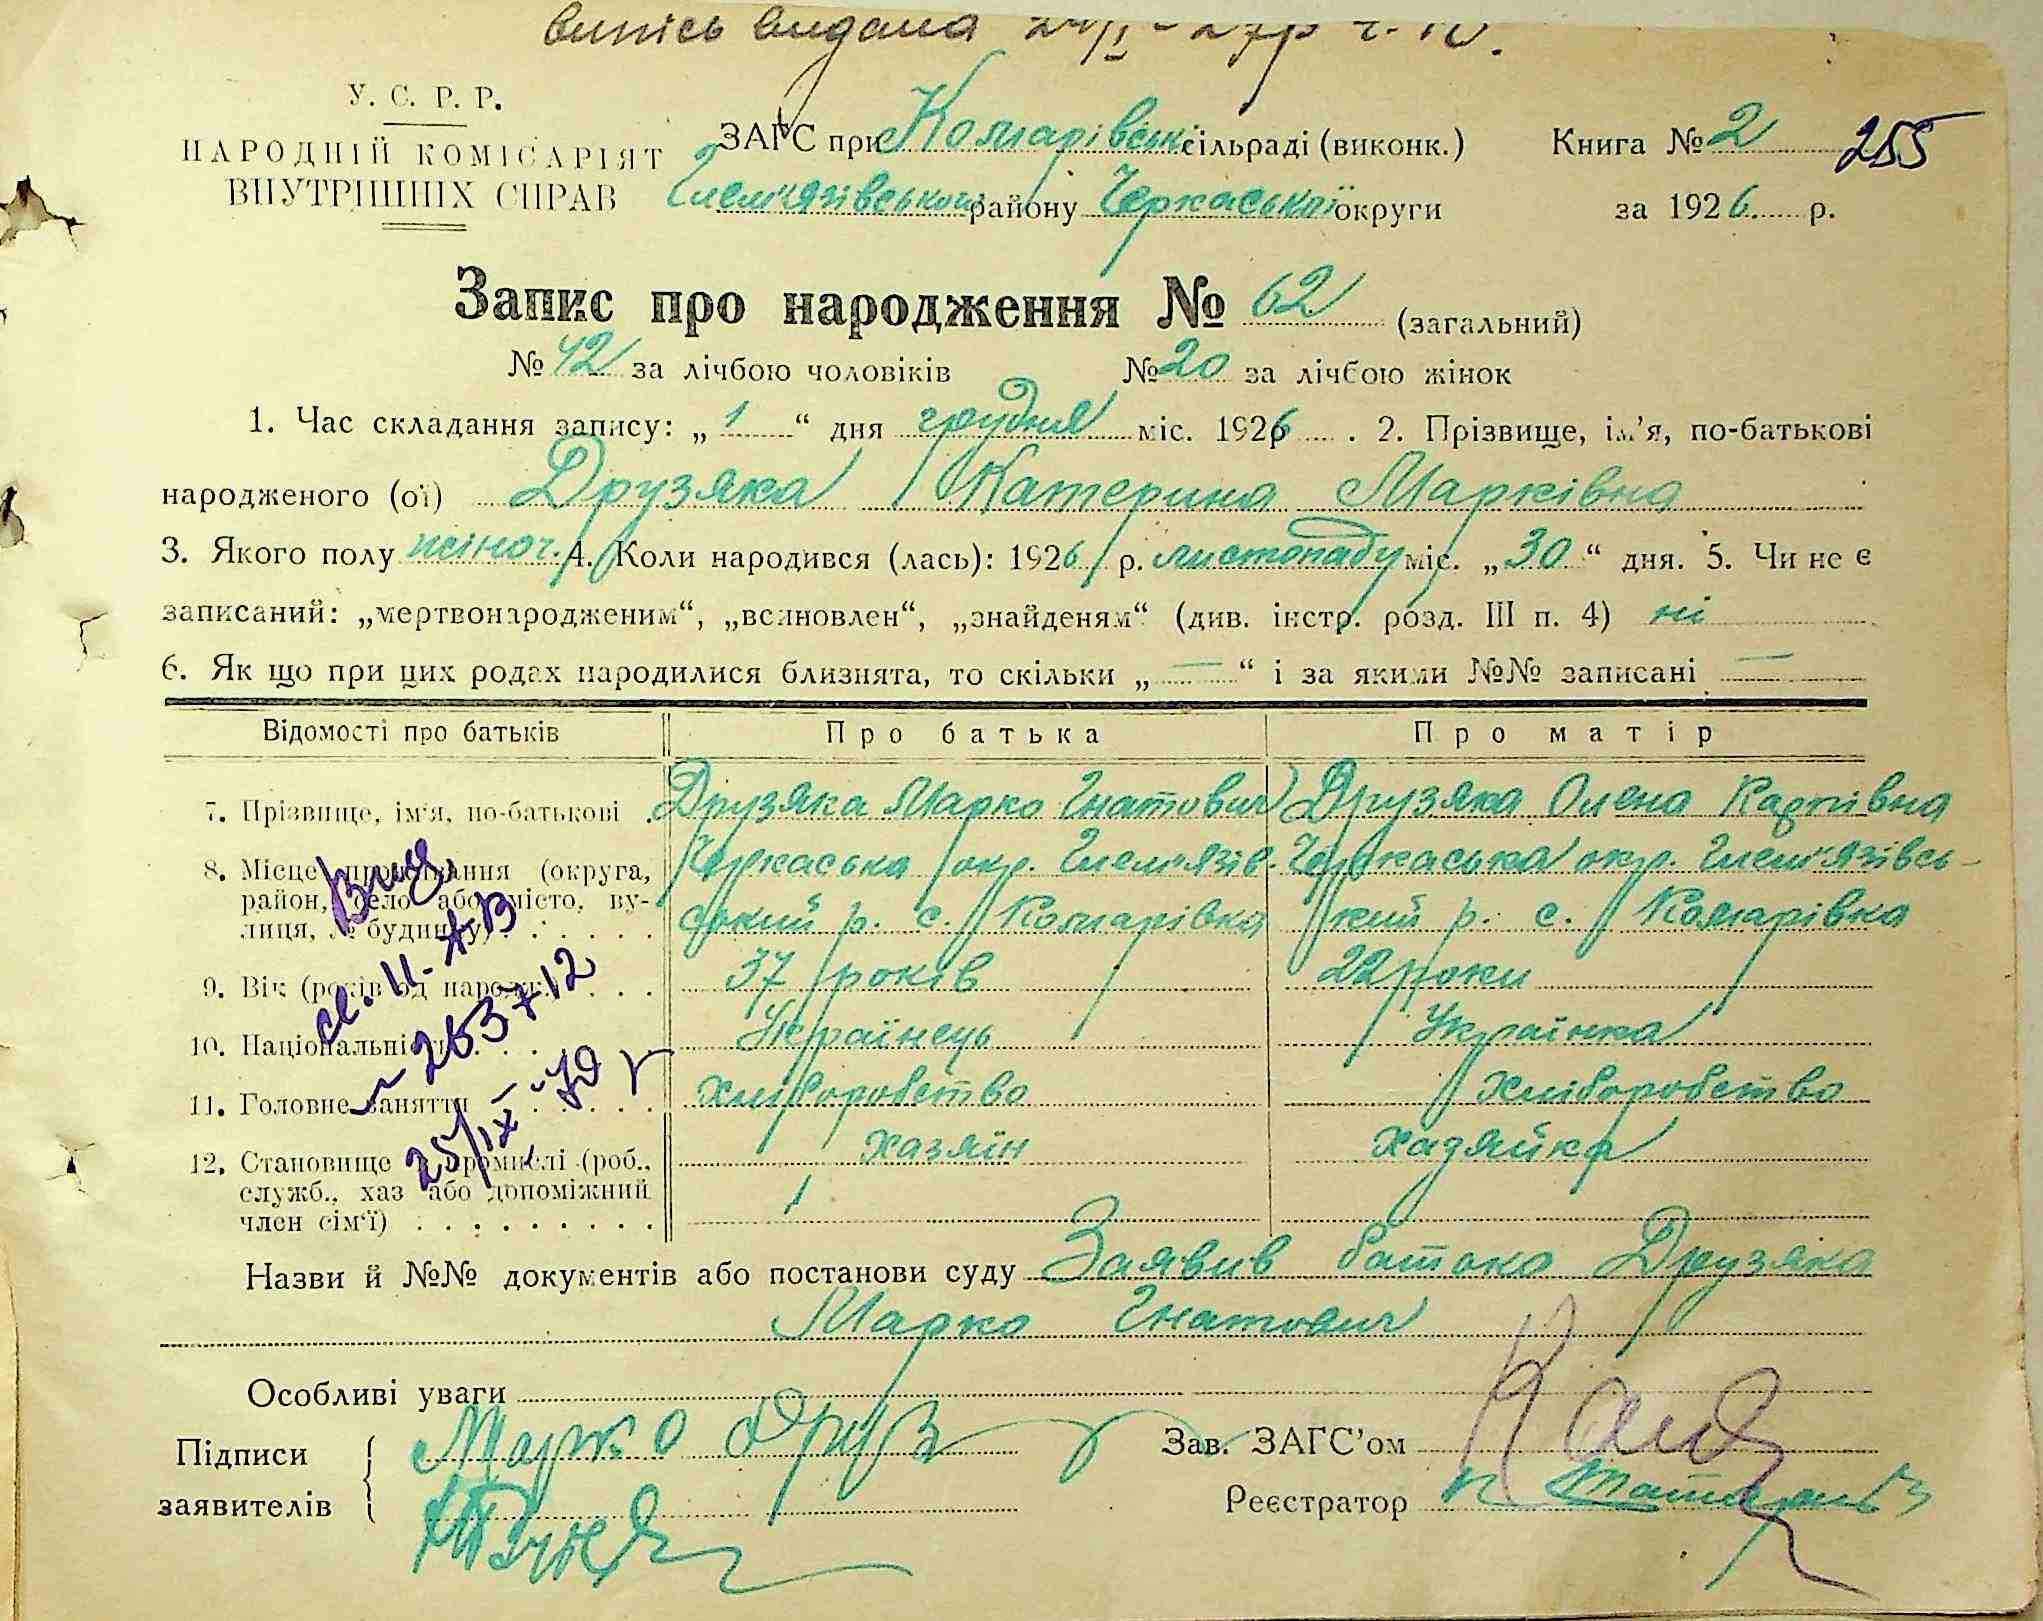 випісь видана 24/I - 27р
У. С. Р. Р.
НАРОДНІЙ КОМІСАРІЯТ
ВНУТРІШНІХ СПРАВ
ЗАГС при Комарівські сільраді (виконк.)
Гельм'язівського району Черкаської округи
Книга № 2 255
за 1926 р.
Запис про народження № 62 (загальний)
№ 42 за лічбою чоловіків № 20 за лічбою жінок
1. Час складання запису: „ 1 “ дня грудня міс. 1926 . 2. Прізвище, ім’я, по-батькові
народженого (ої) Друзяка Катерина Марківна
3. Якого полу жіноч. 4. Коли народився (лась): 1926 р. листопаду міс. „ 30 “ дня. 5. Чи не є
записаний: „мертвонародженим“, „всиновлен“, „знайденям“ (див. інстр. розд. III п. 4) ні
6. Як що при цих родах народилися близнята, то скільки „ — “ і за якими №№ записані —
Відомості про батьків Про батька Про матір
7. Прізвище, ім'я, по-батькові . Друзяка Марко Гнатович Друзяка Олена Карпівна
8. Місце проживання (округа, Черкаська окр. Гельм'язів- Черкаська окр. Гельм'язівсь-
район, село або місто, ву- ський р. с. Комарівка кий р. с. Комарівка
лиця, № будинку) . . . . . .
9. Вік (років од народж.) . . . 37 років 22 роки
10. Національність . . . Українець Українка
11. Головне заняття . . . . . Хліборобство Хліборобство
12. Становище в промислі (роб., хазяїн хазяйка
служб., хаз або допоміжний
член сім'ї) . . . . . . . . .
Вид.
№ 263712
25/IX-70 г
Назви й №№ документів або постанови суду Заявив батько Друзяка
Марко Гнатович
Особливі уваги
Підписи заявителів Марко Друз
Зав. ЗАГС’ом
Реєстратор